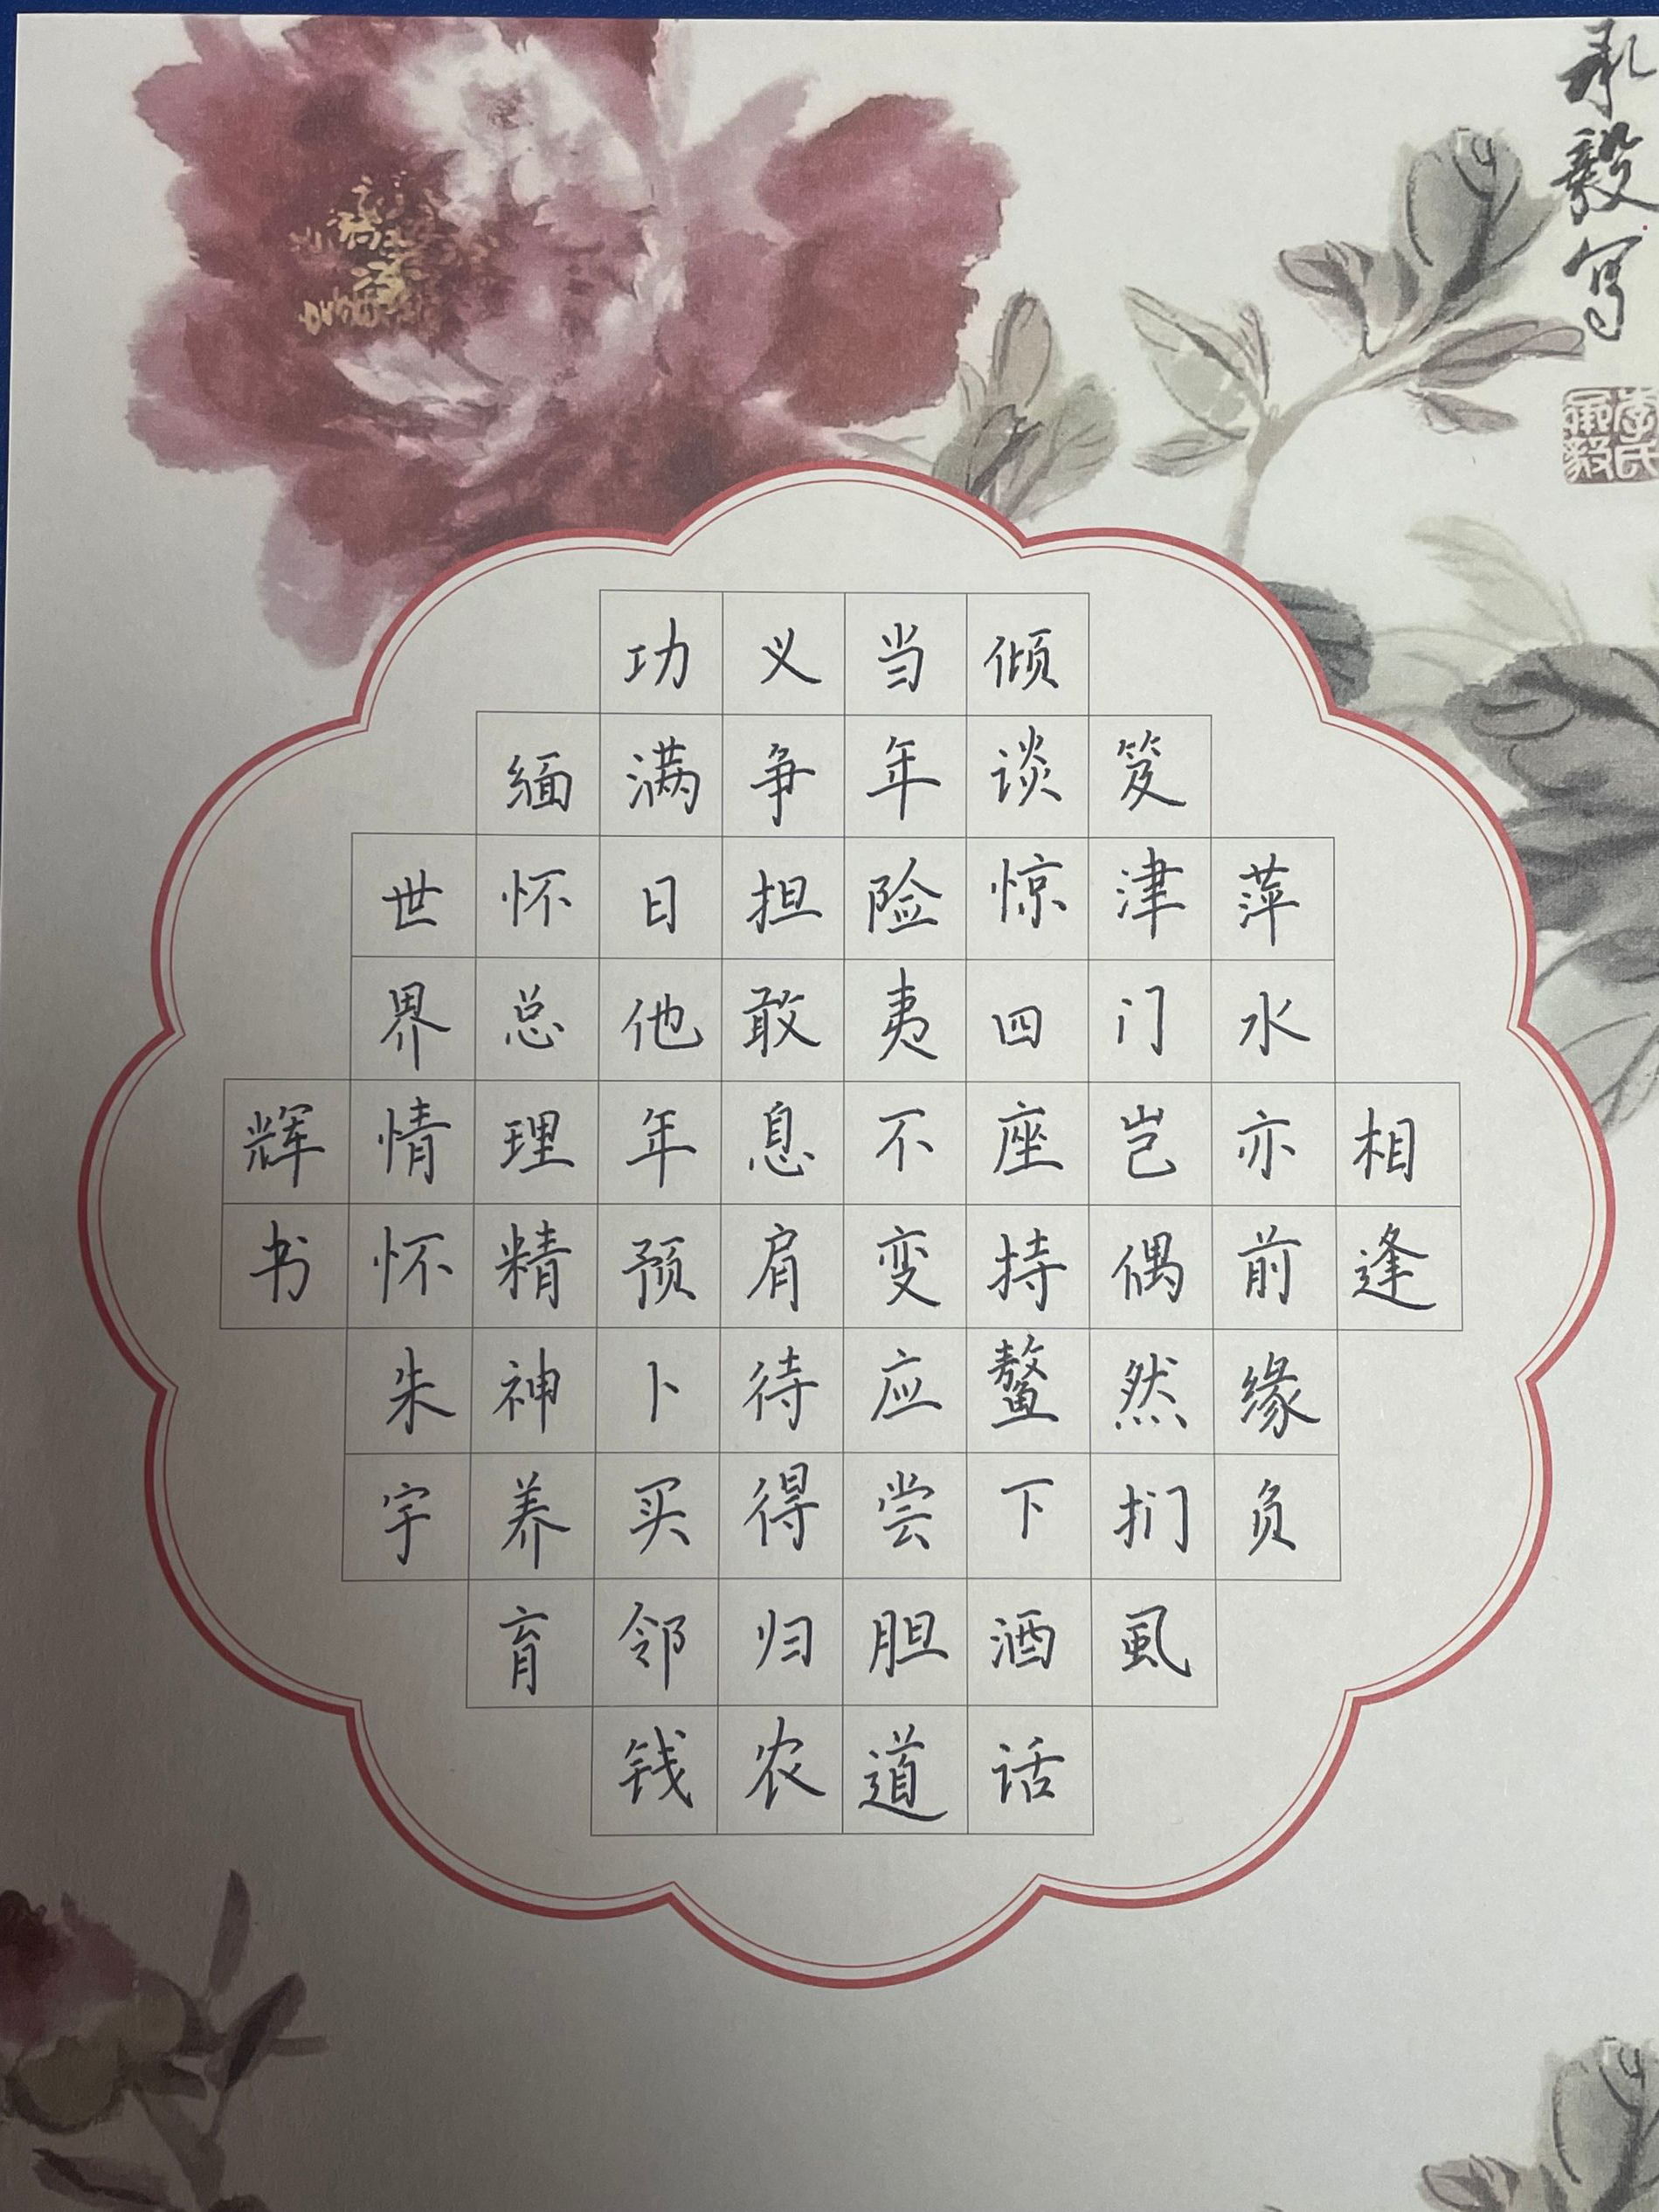 承毅写
李氏
承毅
相逢
萍水亦前缘负
笈津门岂偶然扪虱
倾谈惊四座持鳌下酒话
当年险夷不变应尝胆道
义争担敢息肩待得归农
功满日他年预卜买邻钱
缅怀总理精神养育
世界情怀朱宇
辉书